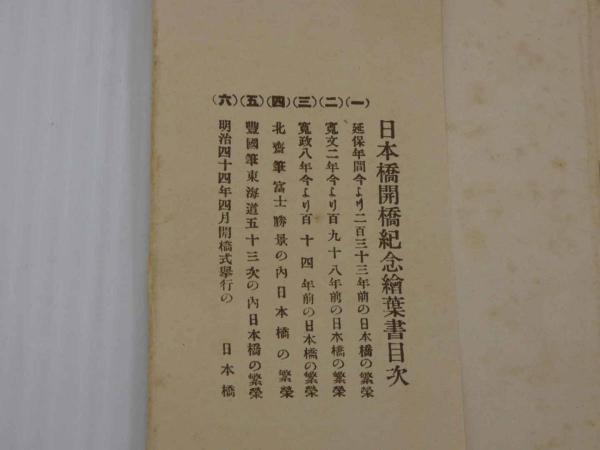 日本橋開橋紀念繪葉書目次
(一) 延保年間今より二百三十三年前の日本橋の繁榮
(二) 寛文二年今より百九十八年前の日本橋の繁榮
(三) 寛政八年今より百十四年前の日本橋の繁榮
(四) 北齋筆富士勝景の內日本橋の繁榮
(五) 豐國筆東海道五十三次の內日本橋の繁榮
(六) 明治四十四年四月開橋式擧行の 日本橋